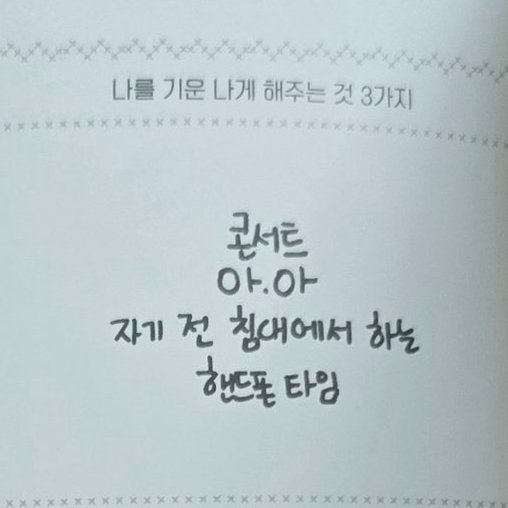 나를 기운 나게 해주는 것 3가지
콘서트
아.아
자기 전 침대에서 하는
핸드폰 타임